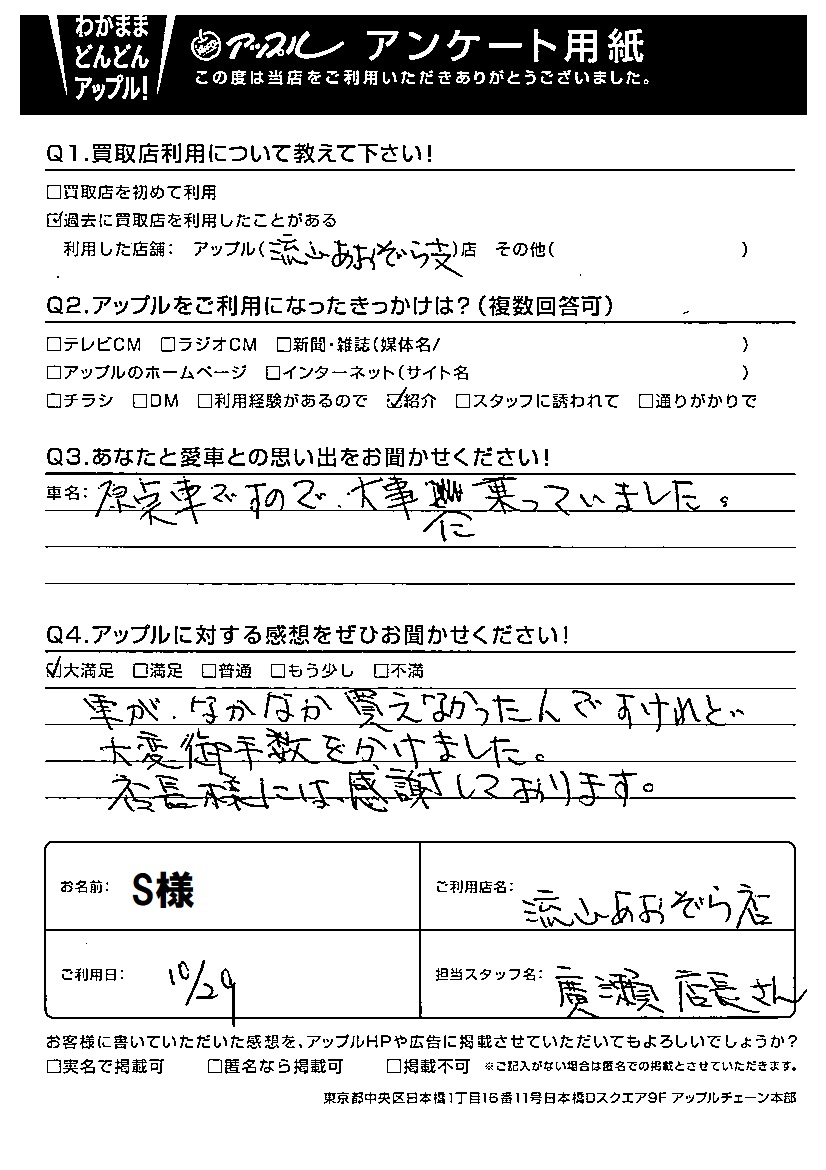 わがまま
どんどん
アップル!
アップル アンケート用紙
この度は当店をご利用いただきありがとうございました。
Q1.買取店利用について教えて下さい!
□買取店を初めて利用
☑過去に買取店を利用したことがある
利用した店舗: アップル(流山あおぞら支)店 その他( )
Q2.アップルをご利用になったきっかけは?(複数回答可)
□テレビCM □ラジオCM □新聞・雑誌(媒体名/ )
□アップルのホームページ □インターネット(サイト名 )
□チラシ □DM □利用経験があるので ☑紹介 □スタッフに誘われて □通りがかりで
Q3.あなたと愛車との思い出をお聞かせください!
車名: 原点車ですので、大事に乗っていました。
Q4.アップルに対する感想をぜひお聞かせください!
☑大満足 □満足 □普通 □もう少し □不満
車が、なかなか買えなかったんですけれど
大変御手数をかけました。
店長様には、感謝しております。
お名前: S様
ご利用店名: 流山あおぞら店
ご利用日: 10/29
担当スタッフ名: 廣瀬 店長さん
お客様に書いていただいた感想を、アップルHPや広告に掲載させていただいてもよろしいでしょうか?
□実名で掲載可 □匿名なら掲載可 □掲載不可 ※ご記入がない場合は匿名での掲載とさせていただきます。
東京都中央区日本橋1丁目16番11号日本橋Dスクエア9F アップルチェーン本部